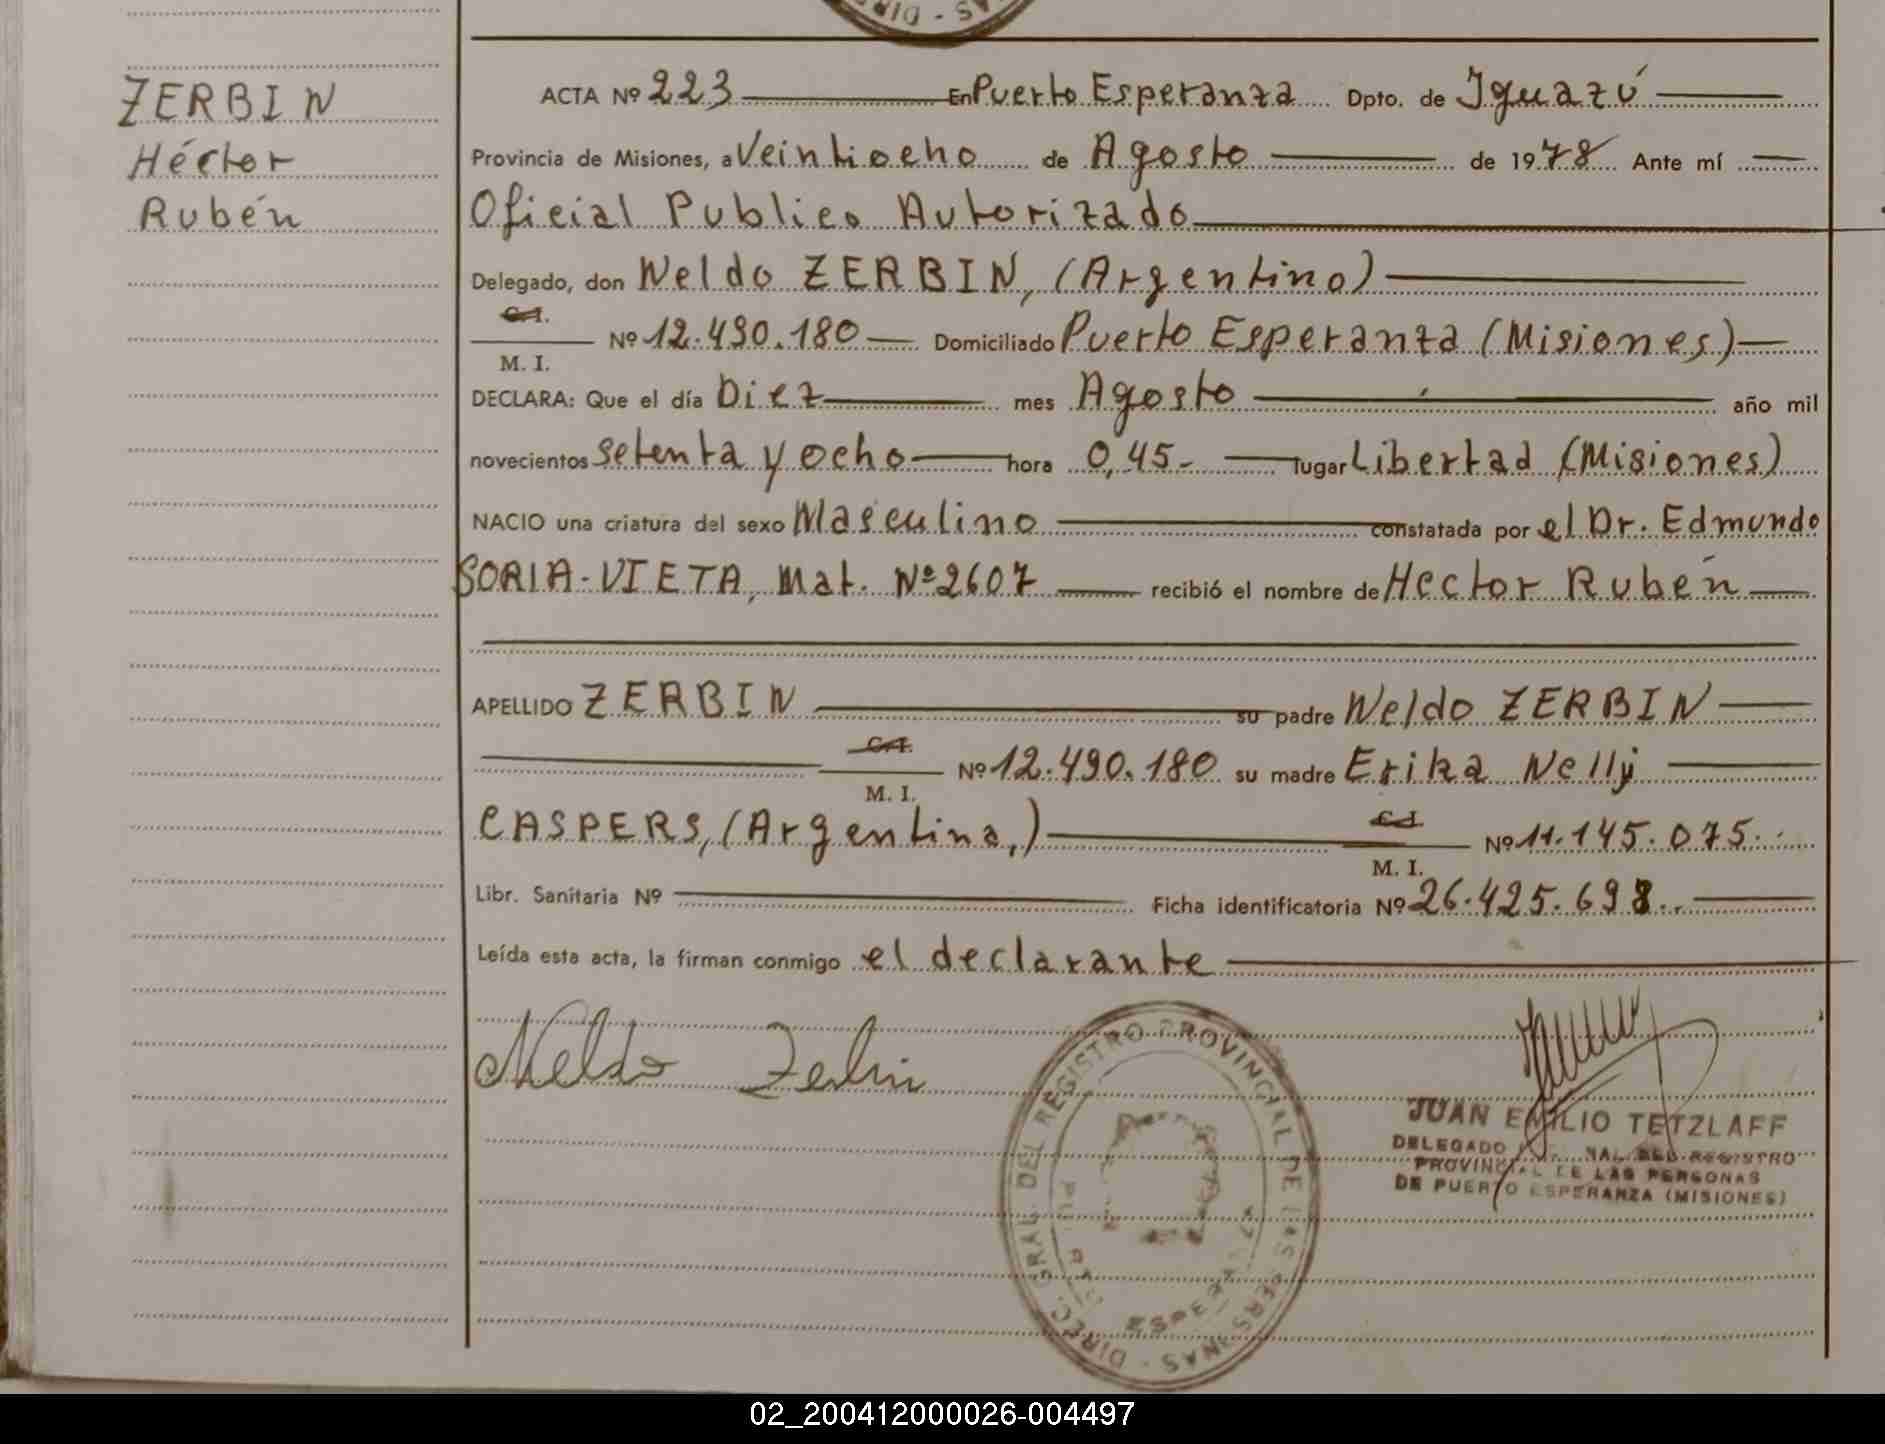 AS - DIR
ZERBIN
Héctor
Rubén
ACTA Nº 223 En Puerto Esperanza Dpto. de Iguazú
Provincia de Misiones, a Veintiocho de Agosto de 1978 Ante mí
Oficial Publico Autorizado
Delegado, don Neldo ZERBIN, (Argentino)
C.I.
M. I. Nº 12.490.180 Domiciliado Puerto Esperanza (Misiones)
DECLARA: Que el día Diez mes Agosto año mil
novecientos setenta y ocho hora 0,45- lugar Libertad (Misiones)
NACIO una criatura del sexo Masculino constatada por el Dr. Edmundo
SORIA-VIETA, Mat. Nº 2607 recibió el nombre de Hector Rubén
APELLIDO ZERBIN su padre Neldo ZERBIN
C.I.
M. I. Nº 12.490.180 su madre Erika Nelly
CASPERS, (Argentina,) C.I.
M. I. Nº 11.145.075.
Libr. Sanitaria Nº Ficha identificatoria Nº 26.425.698.
Leída esta acta, la firman conmigo el declarante
Neldo Zerbin
DIREC. GRAL. DEL REGISTRO PROVINCIAL DE LAS PERSONAS
ESPERANZA
JUAN EMILIO TETZLAFF
DELEGADO DEL REGISTRO
PROVINCIAL DE LAS PERSONAS
DE PUERTO ESPERANZA (MISIONES)
02_200412000026-004497